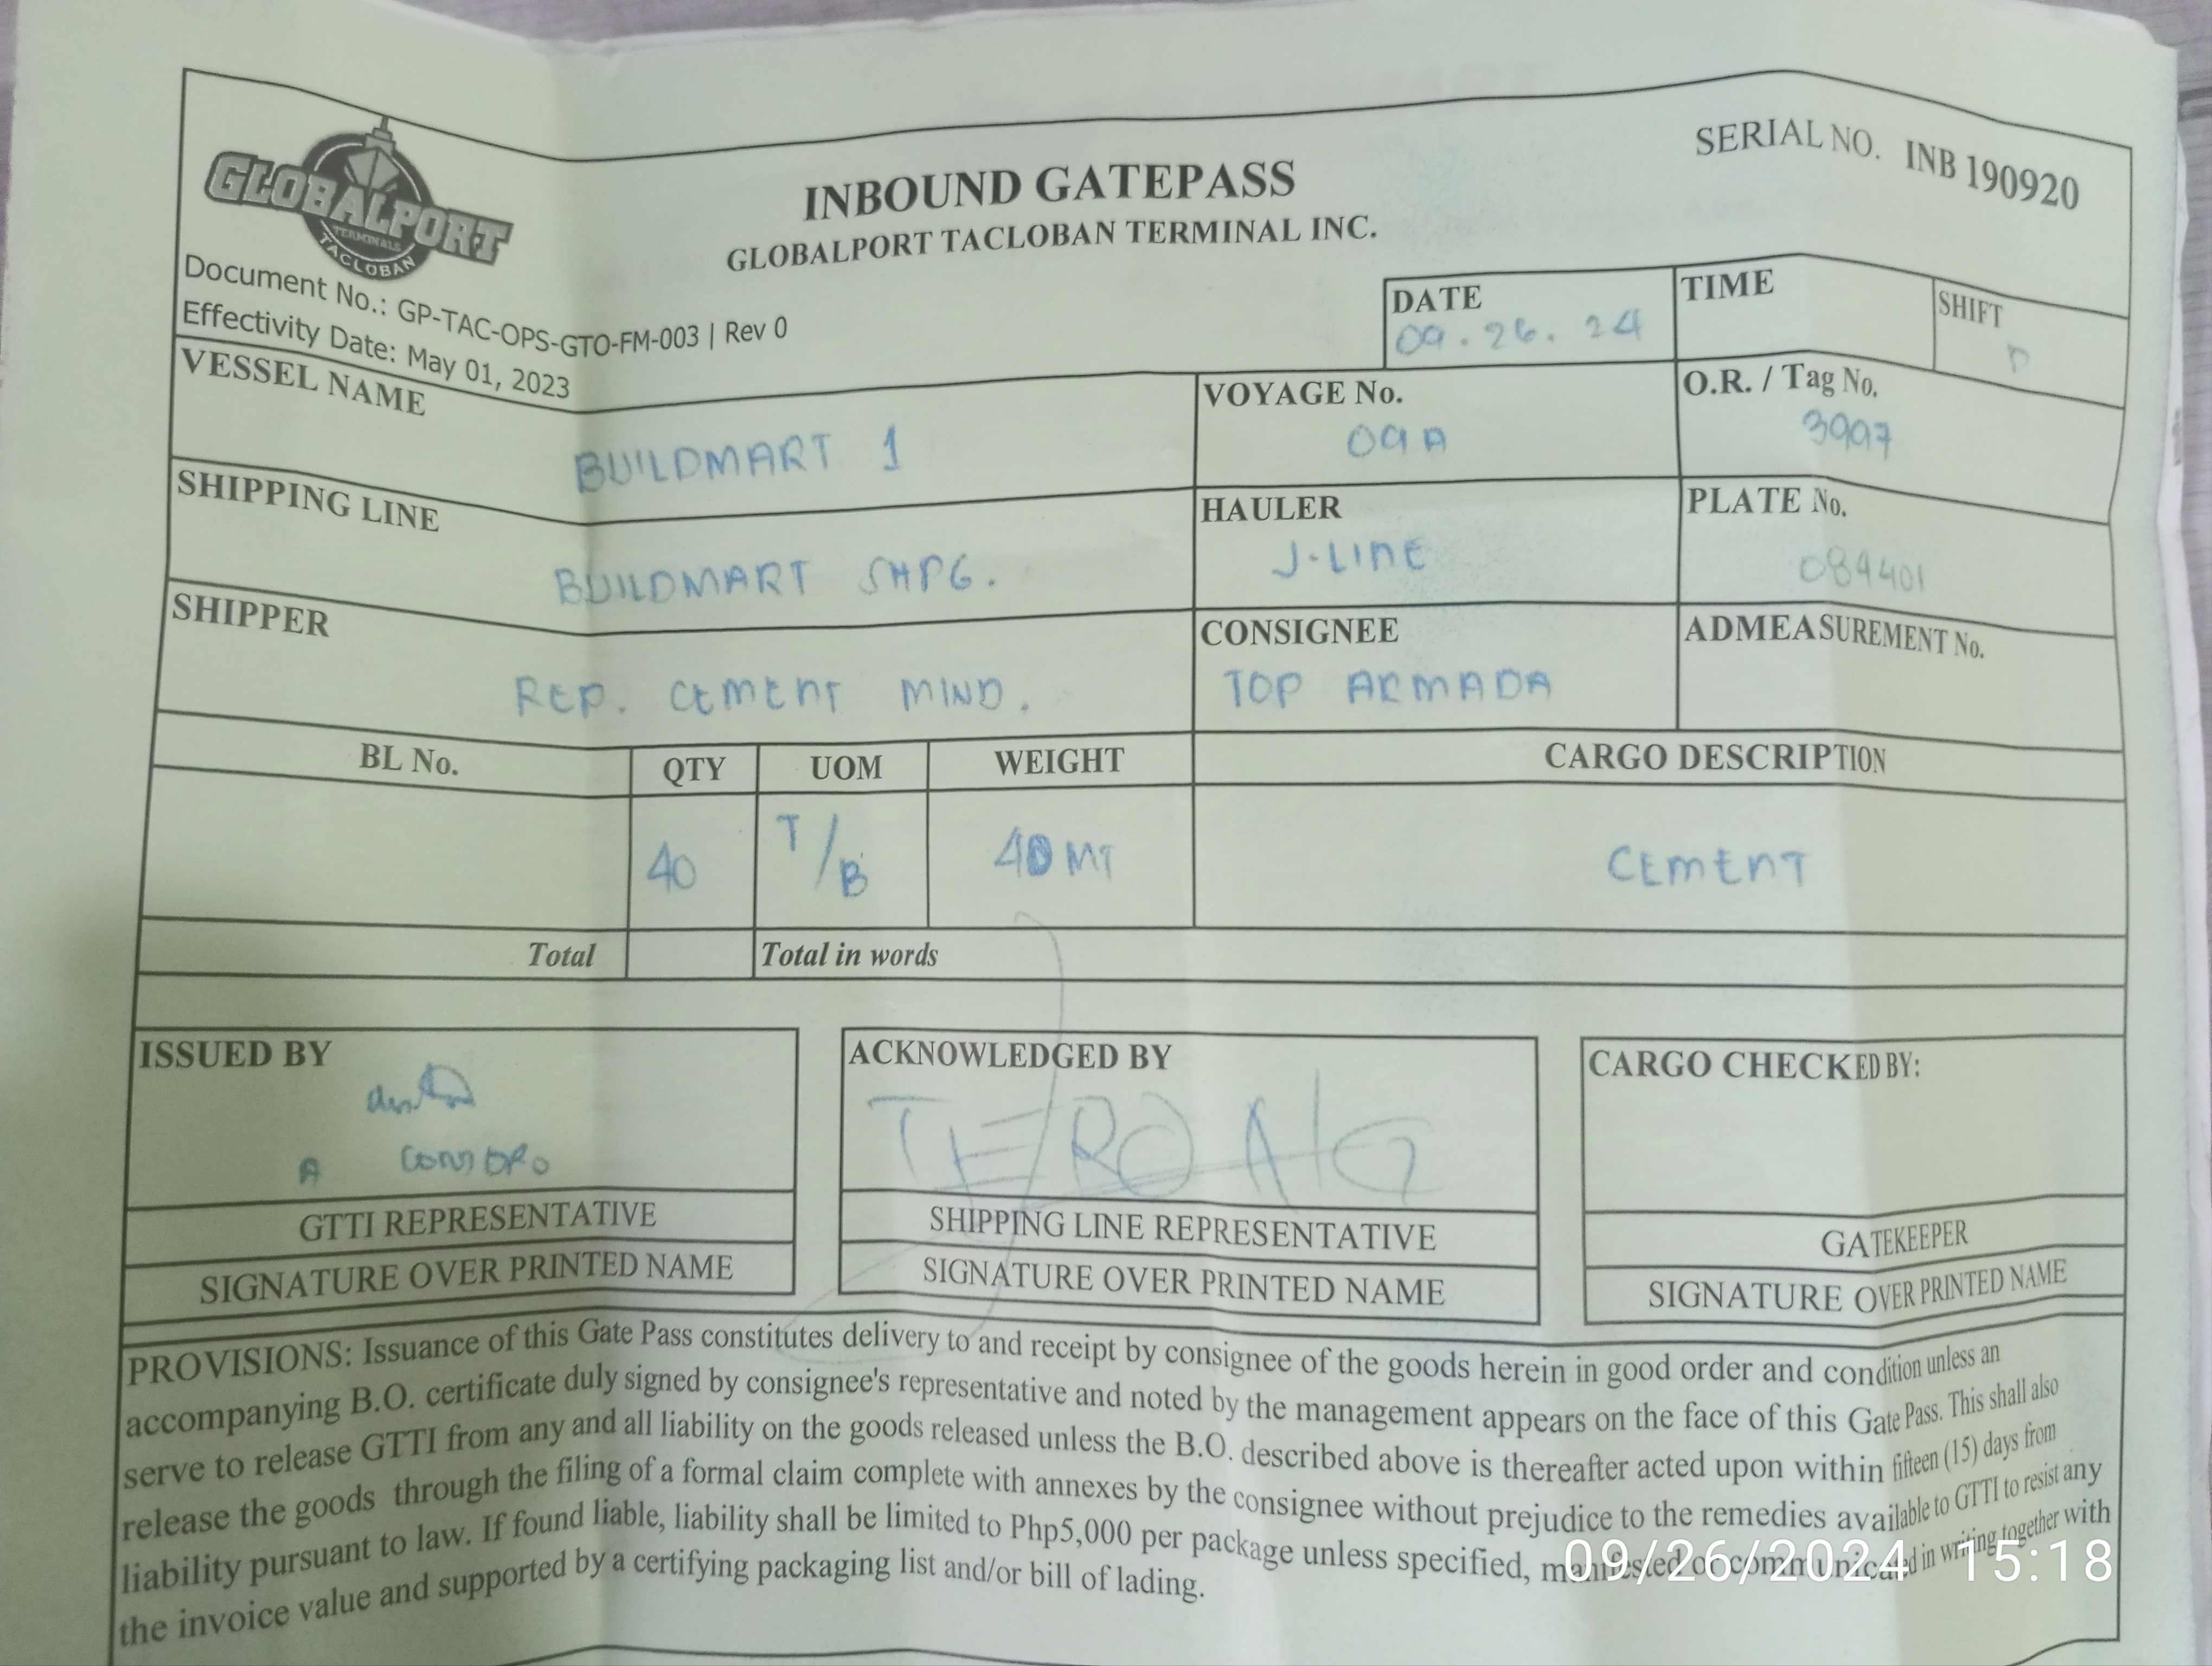 GLOBALPORT
TERMINALS
TACLOBAN
INBOUND GATEPASS
GLOBALPORT TACLOBAN TERMINAL INC.
SERIAL NO. INB 190920
Document No.: GP-TAC-OPS-GTO-FM-003 | Rev 0
Effectivity Date: May 01, 2023
DATE
09.26.24
TIME
SHIFT
D
VESSEL NAME
BUILDMART 1
VOYAGE No.
09A
O.R. / Tag No.
3997
SHIPPING LINE
BUILDMART SHPG.
HAULER
J-LINE
PLATE No.
084401
SHIPPER
REP. CEMENT MIND.
CONSIGNEE
TOP ARMADA
ADMEASUREMENT No.
BL No. QTY UOM WEIGHT CARGO DESCRIPTION
40 T/B 40 MT CEMENT
Total Total in words
ISSUED BY
A
GTTI REPRESENTATIVE
SIGNATURE OVER PRINTED NAME
ACKNOWLEDGED BY
SHIPPING LINE REPRESENTATIVE
SIGNATURE OVER PRINTED NAME
CARGO CHECKED BY:
GATEKEEPER
SIGNATURE OVER PRINTED NAME
PROVISIONS: Issuance of this Gate Pass constitutes delivery to and receipt by consignee of the goods herein in good order and condition unless an
accompanying B.O. certificate duly signed by consignee's representative and noted by the management appears on the face of this Gate Pass. This shall also
serve to release GTTI from any and all liability on the goods released unless the B.O. described above is thereafter acted upon within fifteen (15) days from
release the goods through the filing of a formal claim complete with annexes by the consignee without prejudice to the remedies available to GTTI to resist any
liability pursuant to law. If found liable, liability shall be limited to Php5,000 per package unless specified, manifested or communicated in writing together with
the invoice value and supported by a certifying packaging list and/or bill of lading.
09/26/2024 15:18